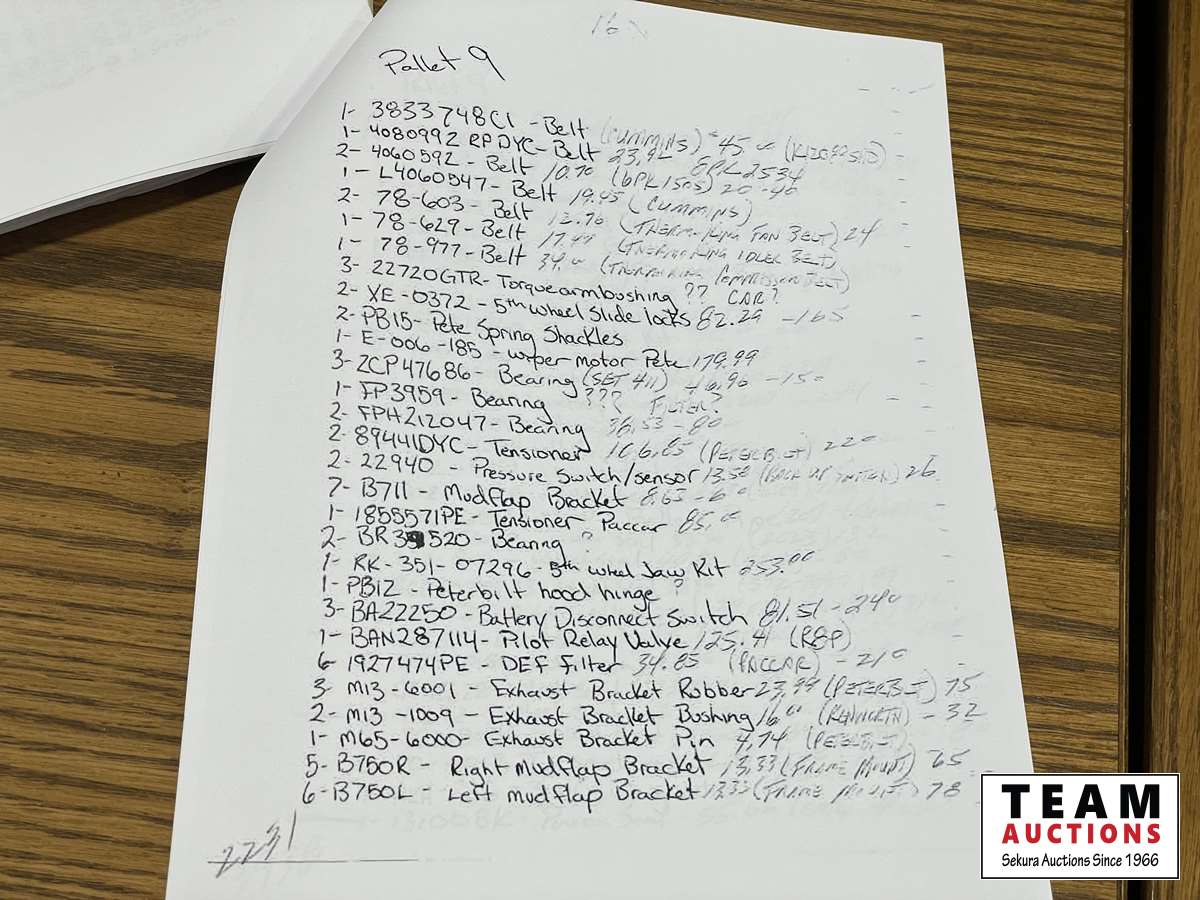 Pallet 9
1- 3833748C1 - Belt (CUMMINS) 45
1- 4080992 RPDYC - Belt 23.92 8PK2534
2- 4060592 - Belt 10.70 (6PK1505) 20 -40
1- L4060547 - Belt 19.45 (CUMMINS)
2- 78-603 - Belt 12.76 (THERMO-KING FAN BELT) 24
1- 78-629 - Belt 17.49 (THERMO KING IDLER BELT)
1- 78-977 - Belt (THERMO KING COMPRESSOR BELT)
3- 22720GTR - Torque arm bushing ?? CAR?
2- XE-0372 - 5th wheel slide locks 82.29 -165
2- PB15 - Pete Spring Shackles
1- E-006-185 - wiper motor Pete 179.99
3- ZCP47686 - Bearing (SET 411) 46.90 -150
1- FP3959 - Bearing ??? FILTER?
2- FPH212047 - Bearing 36.53 -80
2- 89441DYC - Tensioner 106.65 (PETERBILT) 220
2- 22940 - Pressure Switch/sensor 13.58 (BACK UP SWITCH) 26
7- B711 - Mudflap Bracket 8.63 -60
1- 1855571PE - Tensioner Paccar 85.00
2- BR3 520 - Bearing ?
1- RK-351-07296 - 5th wheel Jaw Kit 253.00
1- PB12 - Peterbilt hood hinge ?
3- BA22250 - Battery Disconnect Switch 81.51 -240
1- BAN287114 - Pilot Relay Valve 125.41 (R8P)
6- 1927474PE - DEF Filter 34.85 (PACCAR) -210
3- M13-6001 - Exhaust Bracket Rubber 23.99 (PETERBILT) 75
2- M13-1009 - Exhaust Bracket Bushing 16.00 (KENWORTH) -32
1- M65-6000 - Exhaust Bracket Pin 4.74 (PETERBILT)
5- B750R - Right Mudflap Bracket 13.33 (FRAME MOUNT) 65
6- B750L - Left Mudflap Bracket 13.33 (FRAME MOUNT) 78
2231
TEAM
AUCTIONS
Sekura Auctions Since 1966